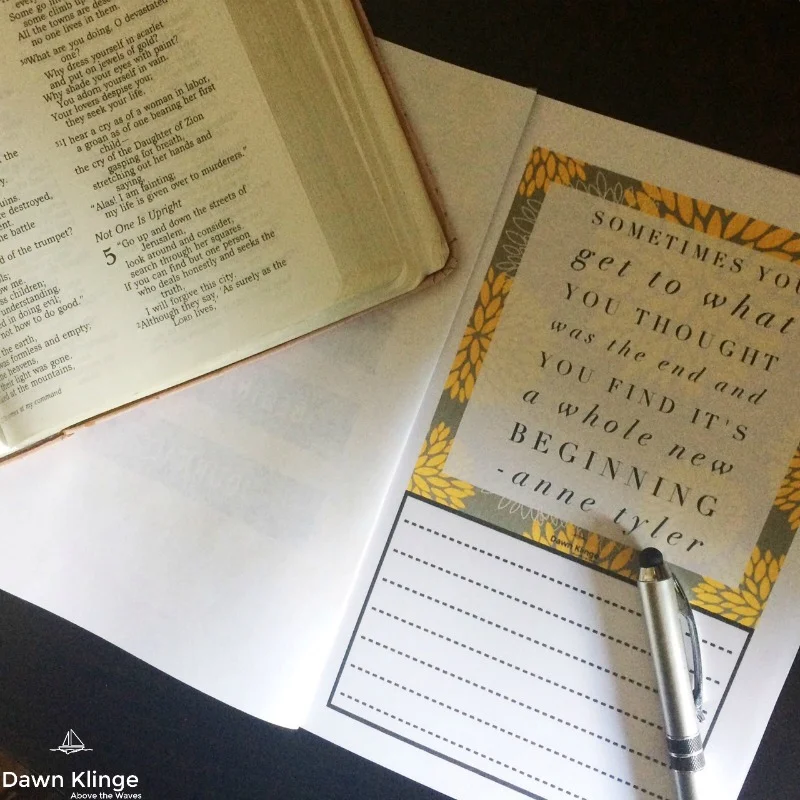 some climb up
All the towns are des
no one lives in them.
30What are you doing, O devastated
one?
Why dress yourself in scarlet
and put on jewels of gold?
Why shade your eyes with paint?
You adorn yourself in vain.
Your lovers despise you;
they seek your life.
31I hear a cry as of a woman in labor,
a groan as of one bearing her first
child—
the cry of the Daughter of Zion
gasping for breath,
stretching out her hands and
saying,
"Alas! I am fainting;
my life is given over to murderers."
Not One Is Upright
5 "Go up and down the streets of
Jerusalem,
look around and consider,
search through her squares.
If you can find but one person
who deals honestly and seeks the
truth,
I will forgive this city.
2Although they say, 'As surely as the
LORD lives,'
the
y.
uins.
re destroyed,
ent.
e battle
d of the trumpet?
ls;
ow me.
ss children;
understanding.
d in doing evil;
not how to do good."
the earth,
was formless and empty;
heavens,
their light was gone.
at the mountains,
at my command
SOMETIMES YOU
get to what
YOU THOUGHT
was the end and
YOU FIND IT'S
a whole new
BEGINNING
-anne tyler
Dawn Klinge
Dawn Klinge
Above the Waves